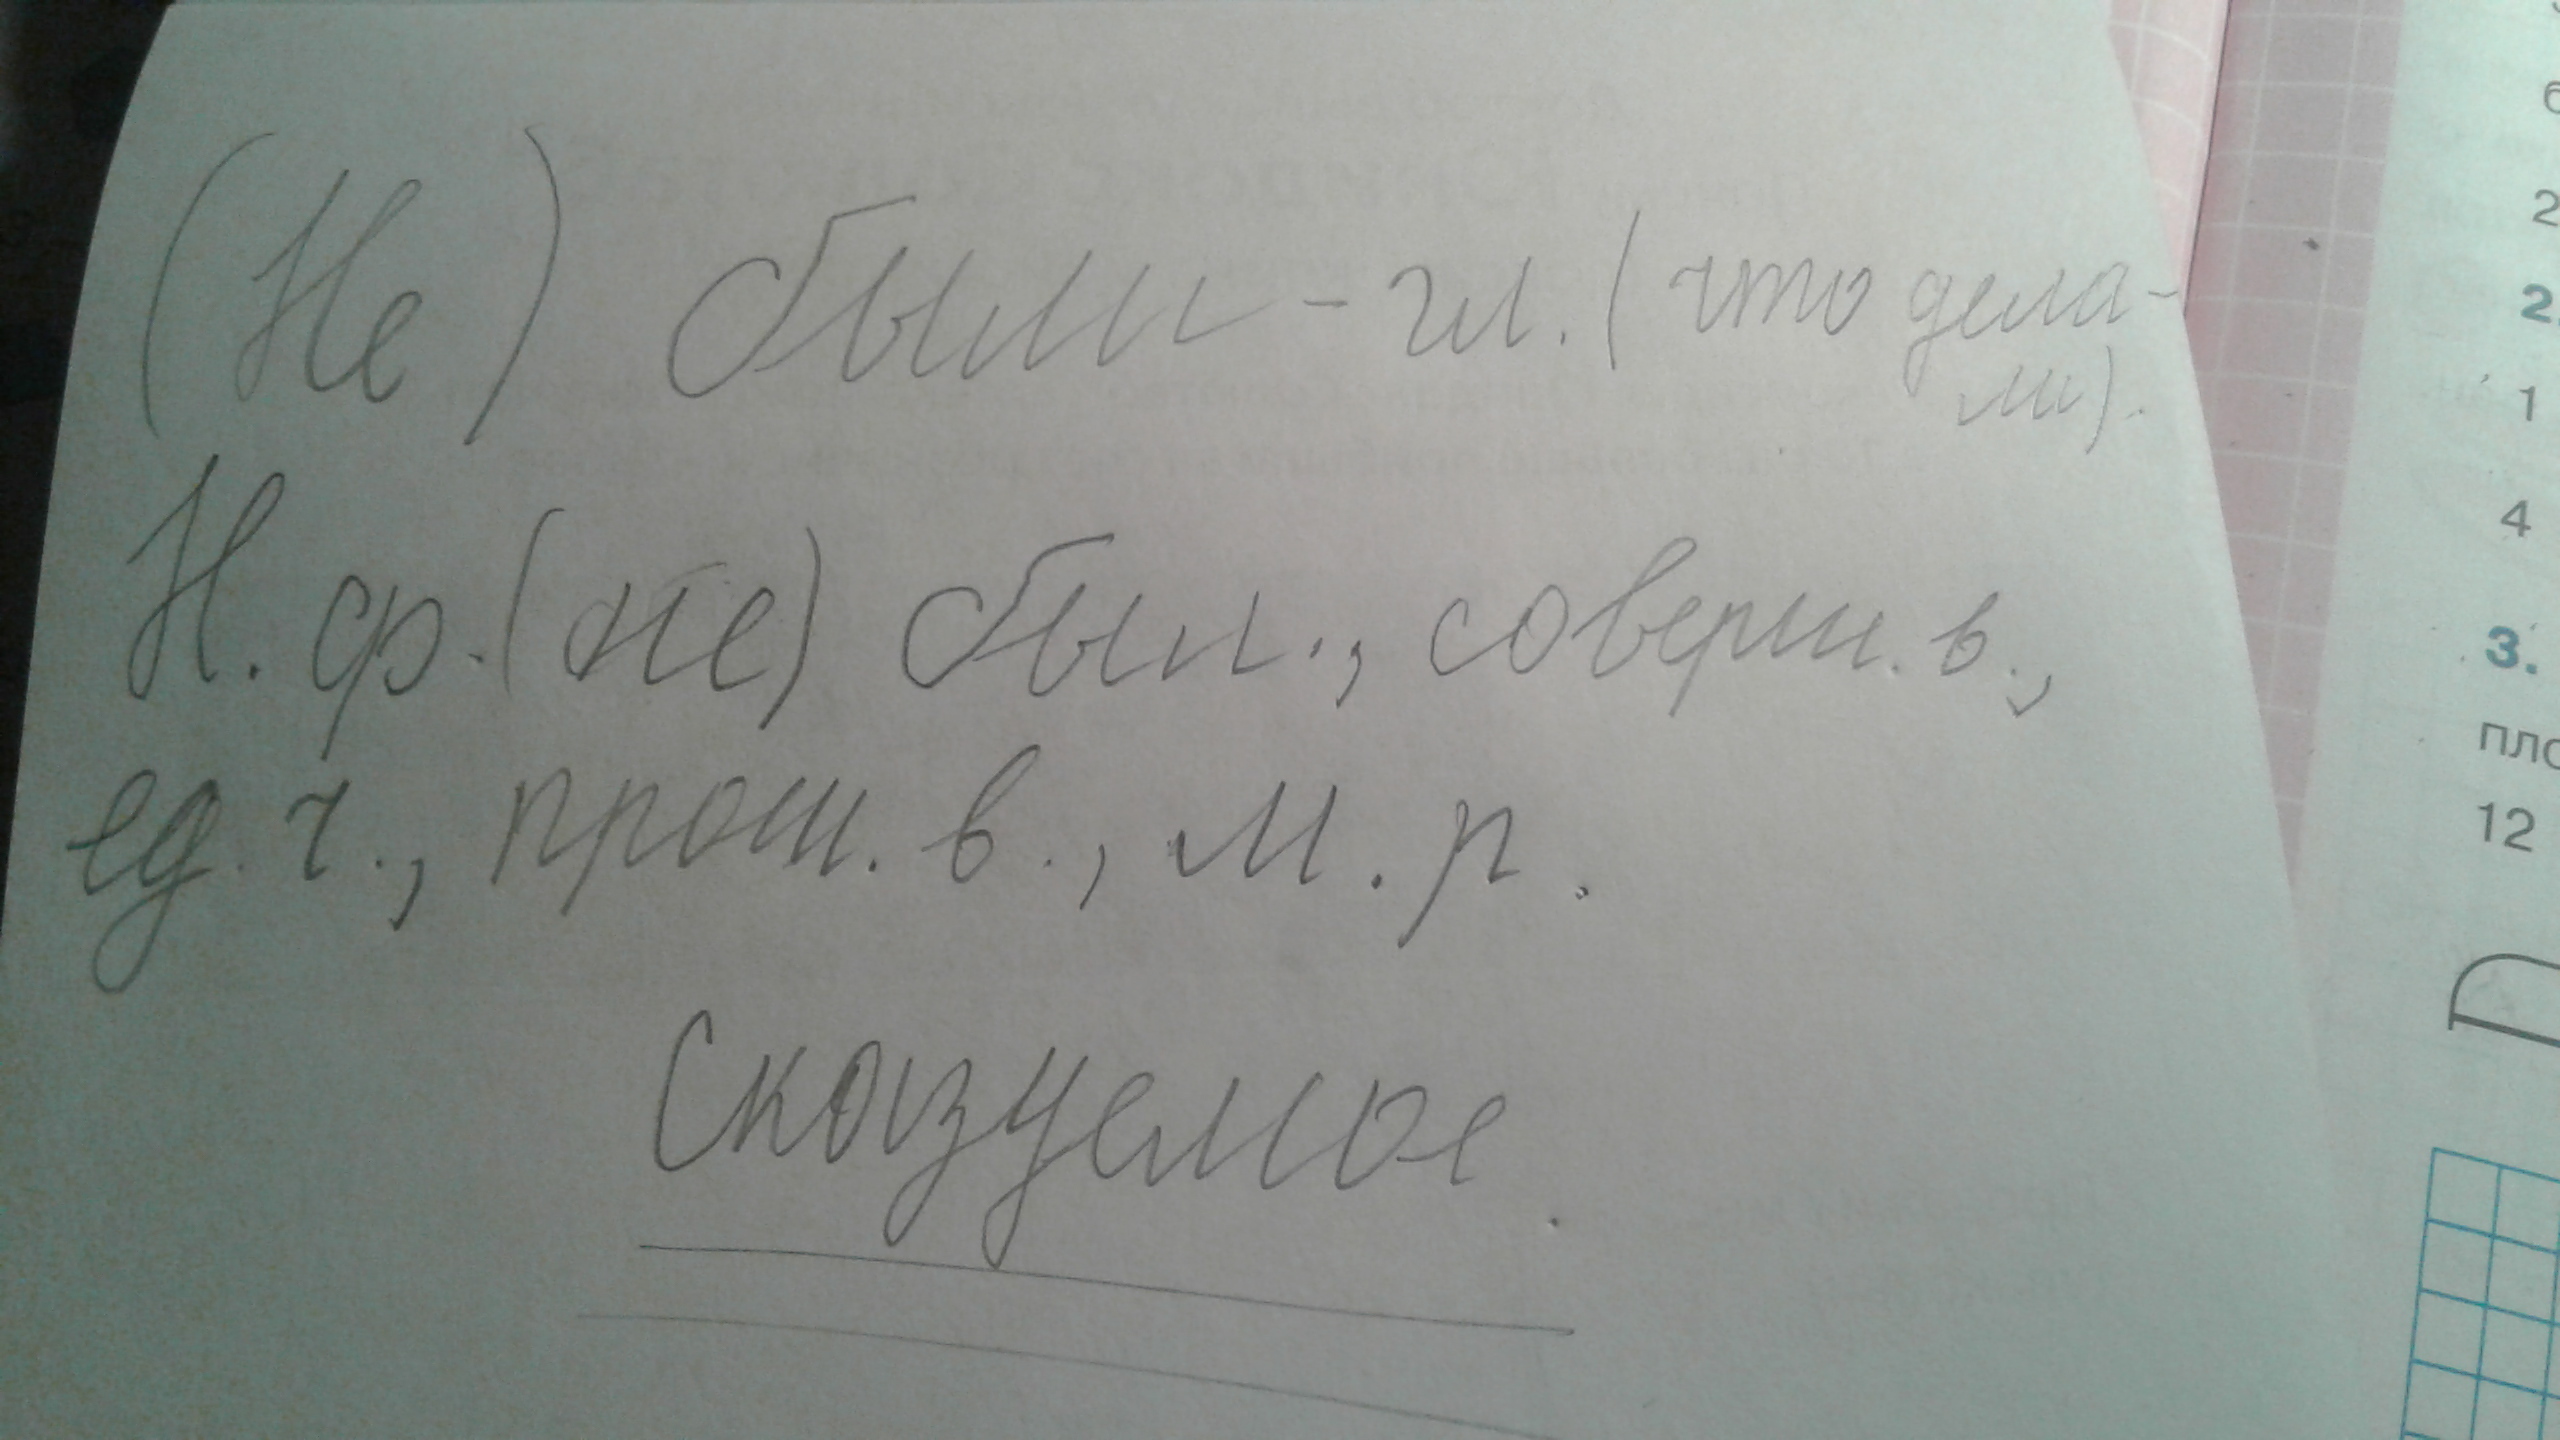 (Не) были - гл. (что дела-
ли).
Н. ф. (не) был., соверш. в.,
ед. ч., прош. в., м. р.
Сказуемое.
2
2.
1
4
3.
12